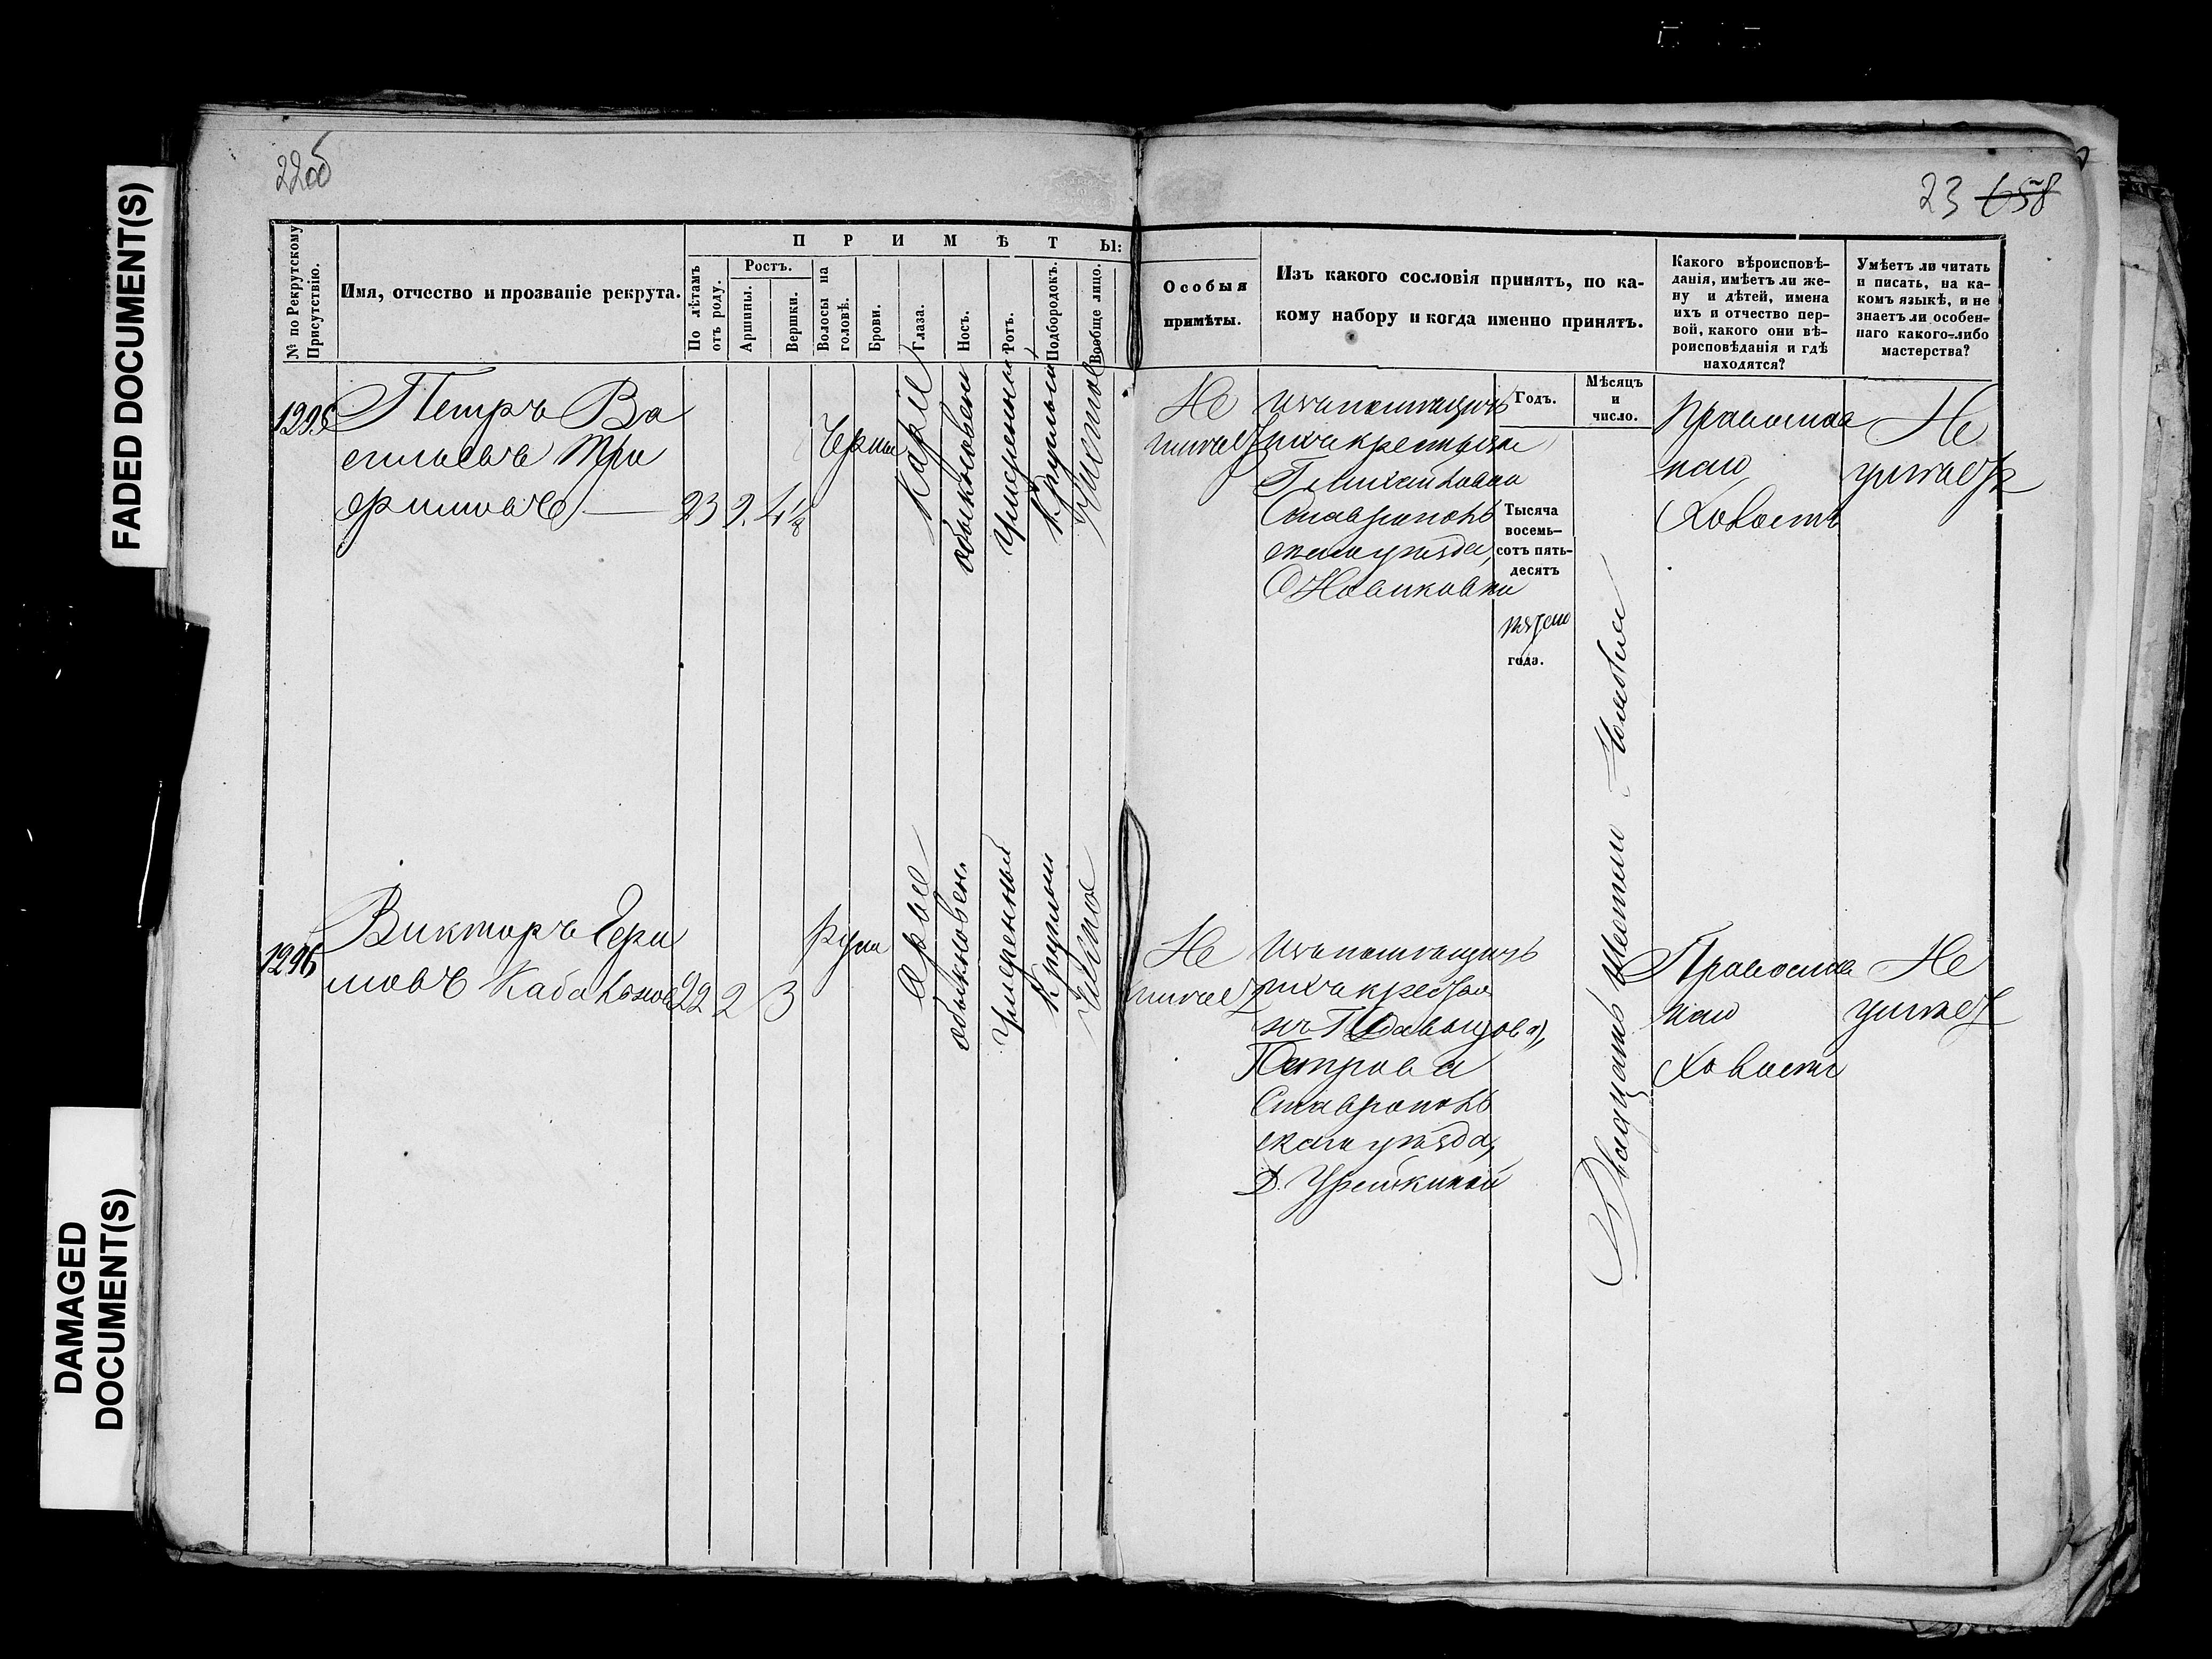 FADED DOCUMENT(S)
DAMAGED
DOCUMENT(S)
22об
23 658
№ по Рекрутскому
Присутствію.
Имя, отчество и прозваніе рекрута.
ПРИМѢТЫ:
По лѣтамъ
отъ роду.
Ростъ.
Аршины.
Вершки.
Волосы на
головѣ.
Брови.
Глаза.
Носъ.
Ротъ.
Подбородокъ.
Вообще лицо.
Особыя
примѣты.
Изъ какого сословія принятъ, по ка-
кому набору и когда именно принятъ.
Какого вѣроисповѣ-
данія, имѣетъ ли же-
ну и дѣтей, имена
ихъ и отчество пер-
вой, какого они вѣ-
роисповѣданія и гдѣ
находятся?
Умѣетъ ли читать
и писать, на ка-
комъ языкѣ, и не
знаетъ ли особен-
наго какого-либо
мастерства?
Годъ.
Мѣсяцъ
и
число.
1295
Петръ Ва
сильевъ Тро
фимовъ
23
2
4 1/8
Черны
Каріе
обыкновен
Умеренный
Круглый
Чистое
Не
имѣетъ
изъ помѣщичь
ихъ крестьян
Г. Михайлова
Ставрополь
скаго уѣзда,
С Новиковки
Тысяча
восемь-
сотъ пять-
десятъ
пятаго
года.
Двадцать шестаго Ноября
Православ
наго
Холостъ
Не
умѣетъ
1296
Викторъ
22
2
3
Русы
Обыкновен.
Умеренный
Круглый
Чистое
Не
имѣетъ
Изъ помѣщичь
ихъ крестья
нъ Г. Давыдова
Петрова
Ставрополь
скаго уѣзда,
Православ
наго
Холостъ
Не
умѣетъ